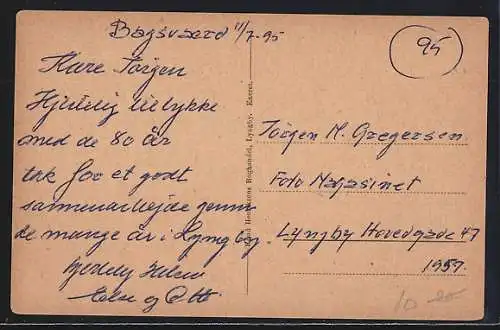 Bagsværd 11/7-95
95
Kære Jørgen
Hjertelig tillykke
med de 80 år
tak for et godt
samarbejde gennem
de mange år i Lyngby.
Kærlig hilsen
Else og Otto
Jørgen M. Gregersen
Foto Magasinet
Lyngby Hovedgade 47
1957.
Boghandel, Lyngby. Eneret.
10